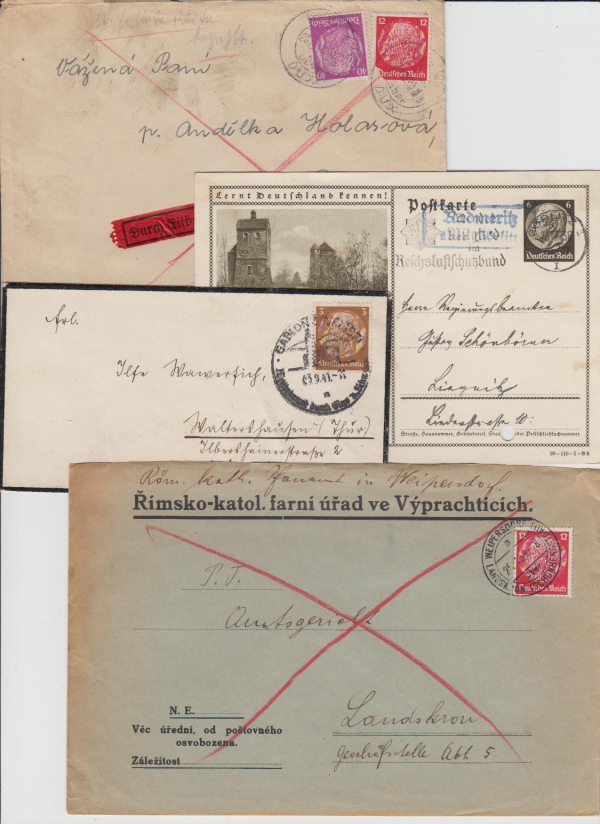 Vážená Paní
p. Andělka Holasová,
10
Deutsches Reich
12
Deutsches Reich
Durch Eilbo
Lernt Deutschland kennen!
Postkarte
Mitglied
im
Reichsluftschutzbund
6 6
Deutsches Reich
Herrn Regierungsbeamten
Schönbörner
Liegnitz
10.
Straße, Hausnummer, Gebäudeteil,
Postschließfachnummer
Frl.
Ilse Wawersich,
Waltershausen (Thür)
Ilbersheimerstraße 2
3 3
Deutsches Reich
Röm. kath. Pfarramt in Weipersdorf.
Římsko-katol. farní úřad ve Výprachticích.
12
Deutsches Reich
WEIPERSDORF
P. T.
Amtsgericht
Landskron
Geschäftstelle Abt 5
N. E.
Věc úřední, od poštovného
osvobozena.
Záležitost